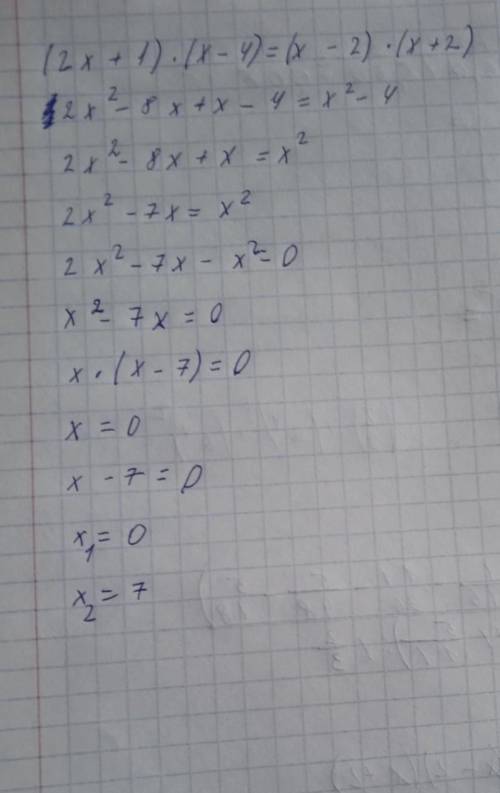 (2x + 1) · (x - 4) = (x - 2) · (x + 2)
2x² - 8x + x - 4 = x² - 4
2x² - 8x + x = x²
2x² - 7x = x²
2x² - 7x - x² = 0
x² - 7x = 0
x · (x - 7) = 0
x = 0
x - 7 = 0
x₁ = 0
x₂ = 7